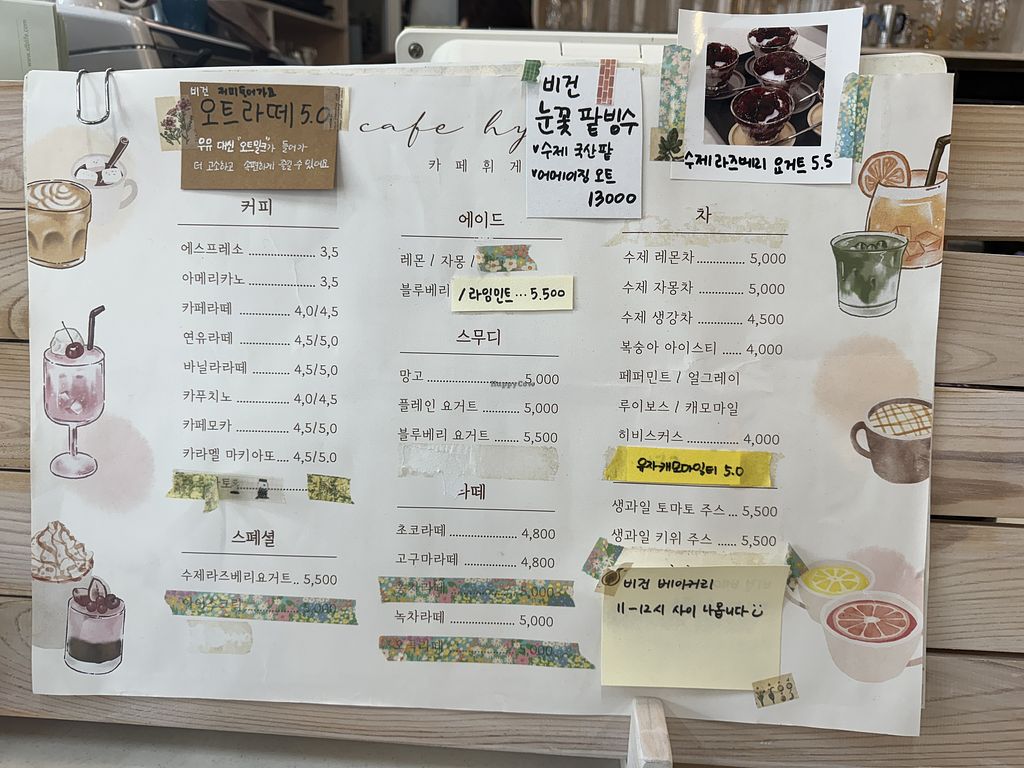 비건 커피들어가요
오트라떼 5.0
우유 대신 "오트밀크"가 들어가
더 고소하고 속편하게 즐길 수 있어요
cafe hy
카페휘게
비건
눈꽃 팥빙수
수제 국산팥
어메이징 오트
13000
수제 라즈베리 요거트 5.5
커피
에스프레소 .................... 3,5
아메리카노 .................... 3,5
카페라떼 ............... 4,0/4,5
연유라떼 ............... 4,5/5,0
바닐라라떼 ............ 4,5/5,0
카푸치노 ............... 4,0/4,5
카페모카 ............... 4,5/5,0
카라멜 마키아또.... 4,5/5,0
스페셜
수제라즈베리요거트.. 5,500
에이드
레몬 / 자몽 /
블루베리 / 라임민트 ... 5.500
스무디
망고 ........................ 5,000
플레인 요거트 .......... 5,000
블루베리 요거트 ....... 5,500
라떼
초코라떼 .................. 4,800
고구마라떼 ............... 4,800
5,000
녹차라떼 .................. 5,000
5,000
차
수제 레몬차 ............ 5,000
수제 자몽차 ............ 5,000
수제 생강차 ............ 4,500
복숭아 아이스티 ...... 4,000
페퍼민트 / 얼그레이
루이보스 / 캐모마일
히비스커스 ............. 4,000
유자캐모마일티 5.0
생과일 토마토 주스 ... 5,500
생과일 키위 주스 ...... 5,500
비건 베이커리
11-12시 사이 나옵니다
HappyCow